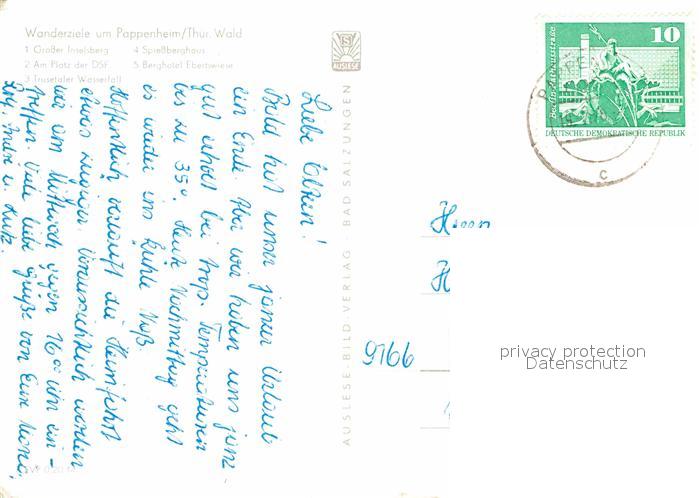 Wanderziele um Pappenheim/Thür. Wald
1 Großer Inselsberg 4 Spießberghaus
2 Am Platz der DSF 5 Berghotel Ebertswiese
3 Trusetaler Wasserfall
AUSLESE
10
Berlin, Rathausstraße
DEUTSCHE DEMOKRATISCHE REPUBLIK
C
Liebe Eltern!
Bald hat unser schöner Urlaub
ein Ende. Aber wir haben uns ganz
gut erholt bei trop. Temperaturen
bis zu 35°. Heute Nachmittag geht
es wieder ins kühle Naß.
Hoffentlich verläuft die Heimfahrt
etwas zügiger. Voraussichtlich werden
wir am Mittwoch gegen 16°° Uhr ein-
treffen. Viele liebe Grüße von Eure
André u. Lutz.
AUSLESE-BILD-VERLAG · BAD SALZUNGEN
H
9166
privacy protection
Datenschutz